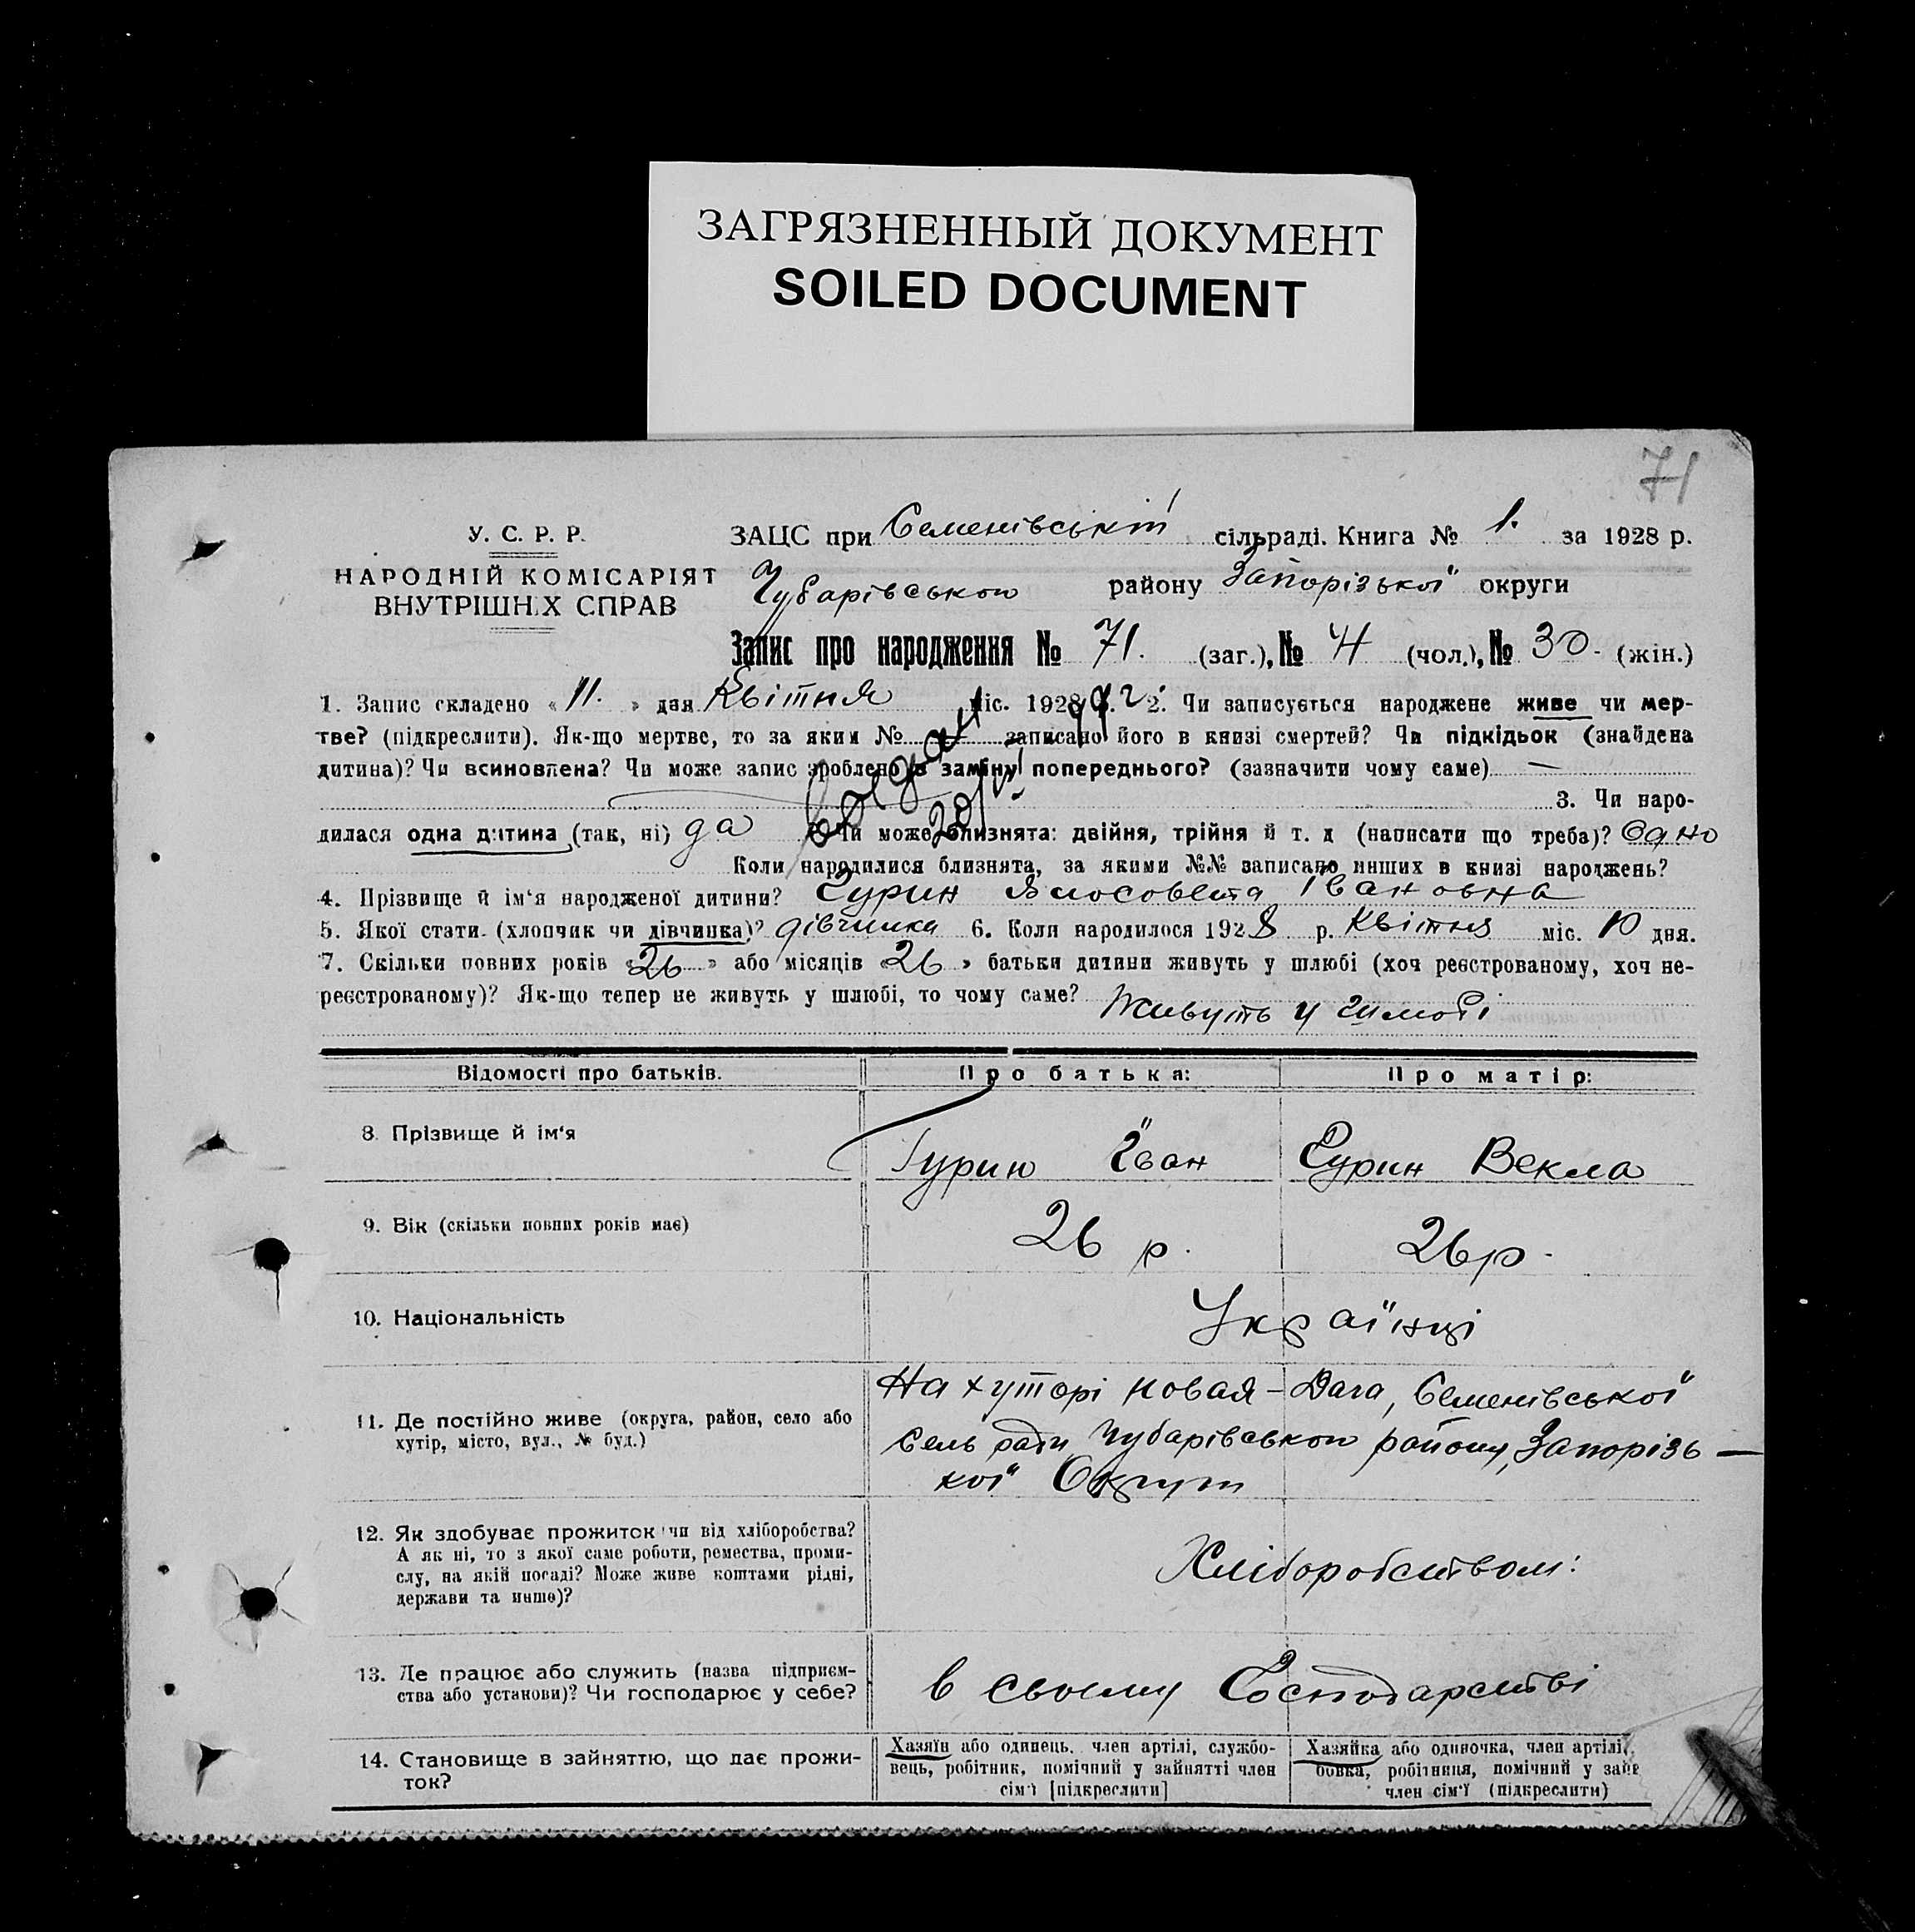 ЗАГРЯЗНЕННЫЙ ДОКУМЕНТ
SOILED DOCUMENT
71
У. С. Р. Р.
НАРОДНІЙ КОМІСАРІЯТ
ВНУТРІШНІХ СПРАВ
ЗАЦС при Семенівській сільраді. Книга № 1. за 1928 р.
Чубарівського району Запорізької округи
Запис про народження № 71. (заг.), № 41 (чол.), № 30. (жін.)
1. Запис складено «11.» дня Квітня міс. 1928 2. Чи записується народжене живе чи мер-
тве? (підкреслити). Як-що мертве, то за яким № записано його в книзі смертей? Чи підкідьок (знайдена
дитина)? Чи всиновлена? Чи може запис зроблено в заміну попереднього? (зазначити чому саме) —
3. Чи наро-
дилася одна дитина (так, ні) да Чи може близнята: двійня, трійня й т. д (написати що треба)? Одно
Коли народилися близнята, за якими №№ записано инших в книзі народжень?
4. Прізвище й ім'я народженої дитини? Гурин Івановна
5. Якої стати (хлопчик чи дівчинка)? дівчинка 6. Коли народилося 1928 р. Квітня міс. 10 дня.
7. Скільки повних років «26» або місяців «26» батьки дитини живуть у шлюбі (хоч реєстрованому, хоч не-
реєстрованому)? Як-що тепер не живуть у шлюбі, то чому саме? Живуть у шлюбі
Відомості про батьків.
Про батька:
Про матір:
8. Прізвище й ім'я
Гурин Їван
Гурин Векла
9. Вік (скільки повних років має)
26 р.
26 р.
10. Національність
Українці
11. Де постійно живе (округа, район, село або
хутір, місто, вул., № буд.)
На хуторі новая-Дача, Семенівської
Сель ради Чубарівського району, Запорізь—
кої Округи
12. Як здобуває прожиток чи від хліборобства?
А як ні, то з якої саме роботи, ремества, проми-
слу, на якій посаді? Може живе коштами рідні,
держави та инше)?
Хліборобством:
13. Де працює або служить (назва підприєм-
ства або установи)? Чи господарює у себе?
в своему Господарстві
14. Становище в зайняттю, що дає прожи-
ток?
Хазяїн або одинець, член артілі, службо-
вець, робітник, помічний у зайнятті член
сім'ї [підкреслити]
Хазяйка або одиночка, член артілі,
бовка, робітниця, помічний у зайн
член сім'ї (підкреслити)